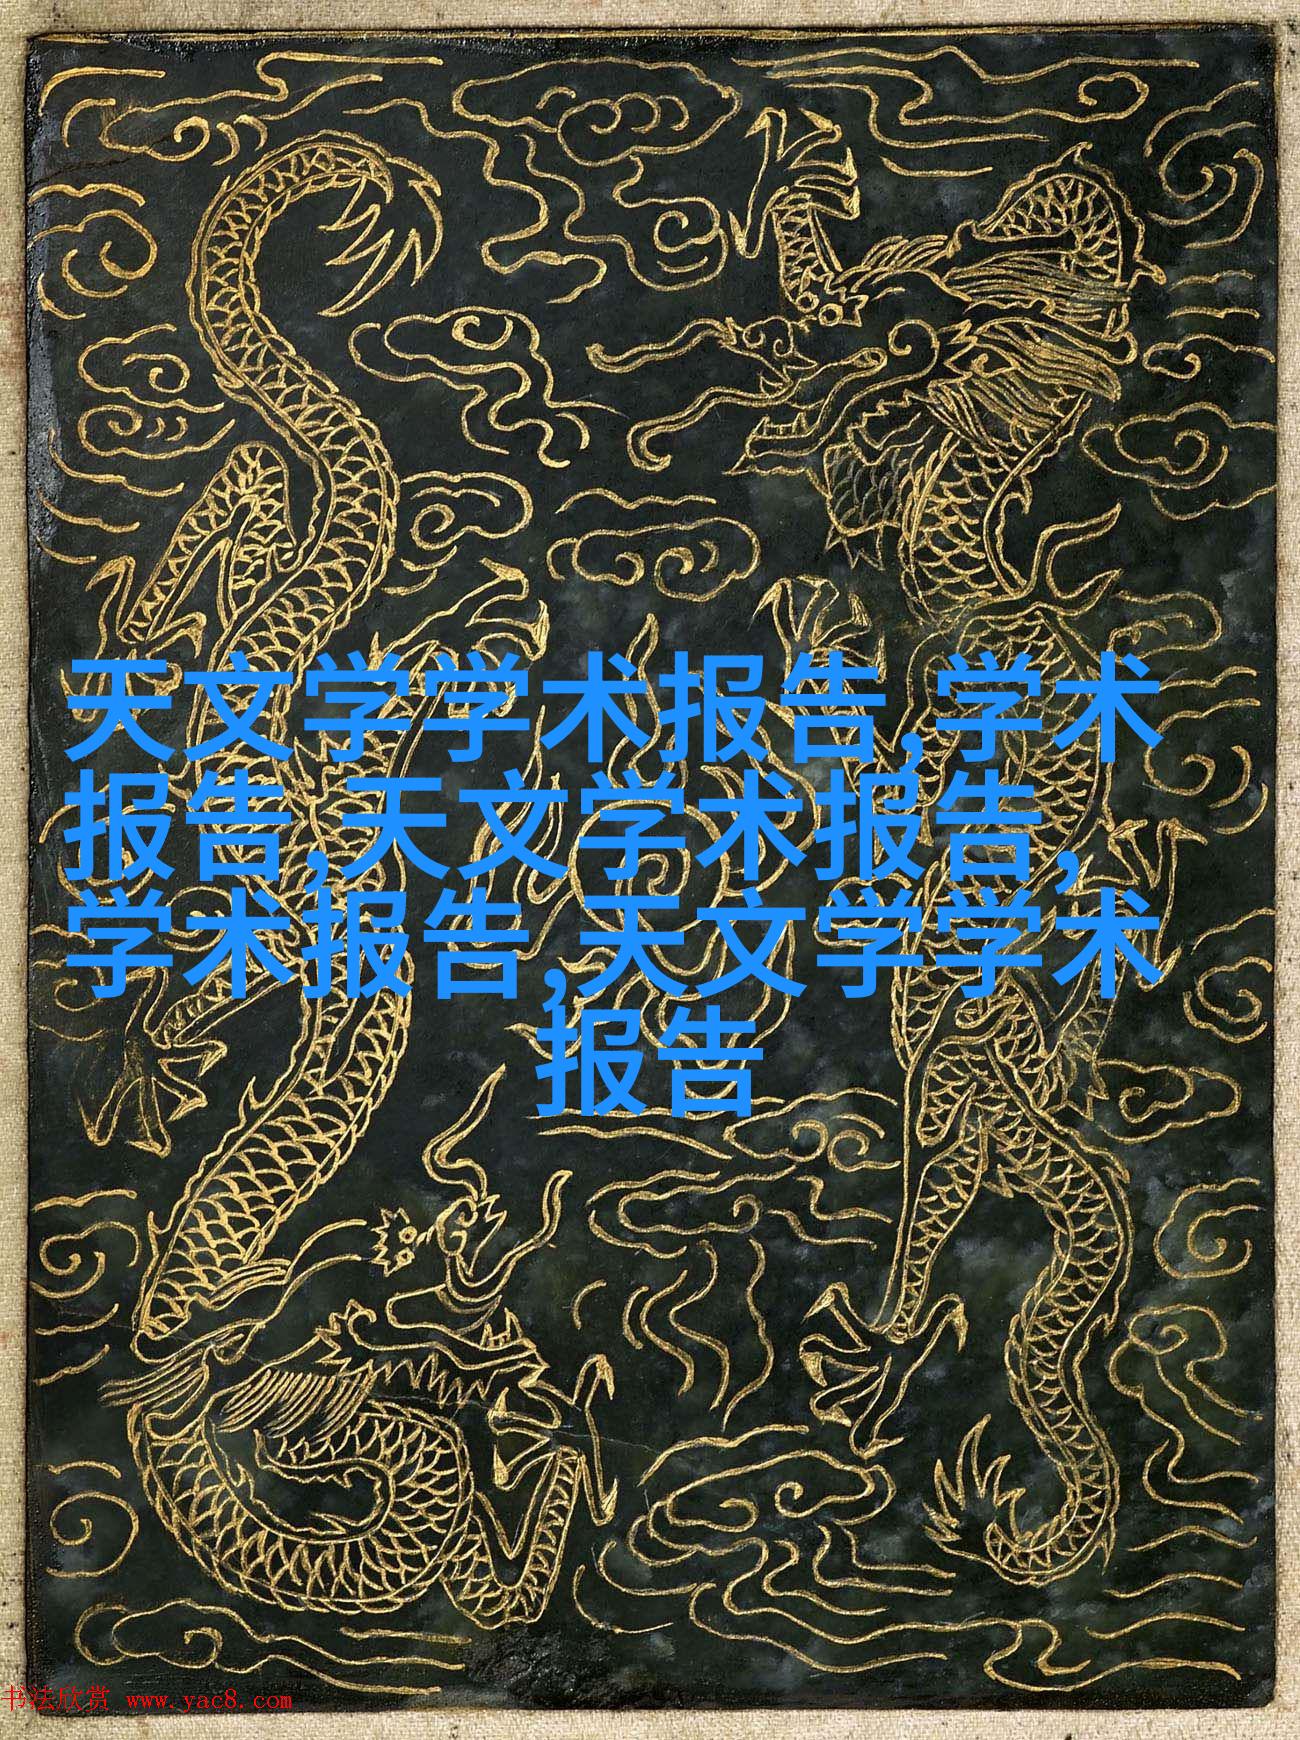 天文学学术报告,学术
报告,天文学术报告,
学术报告,天文学学术
报告
书法欣赏 www.yac8.com